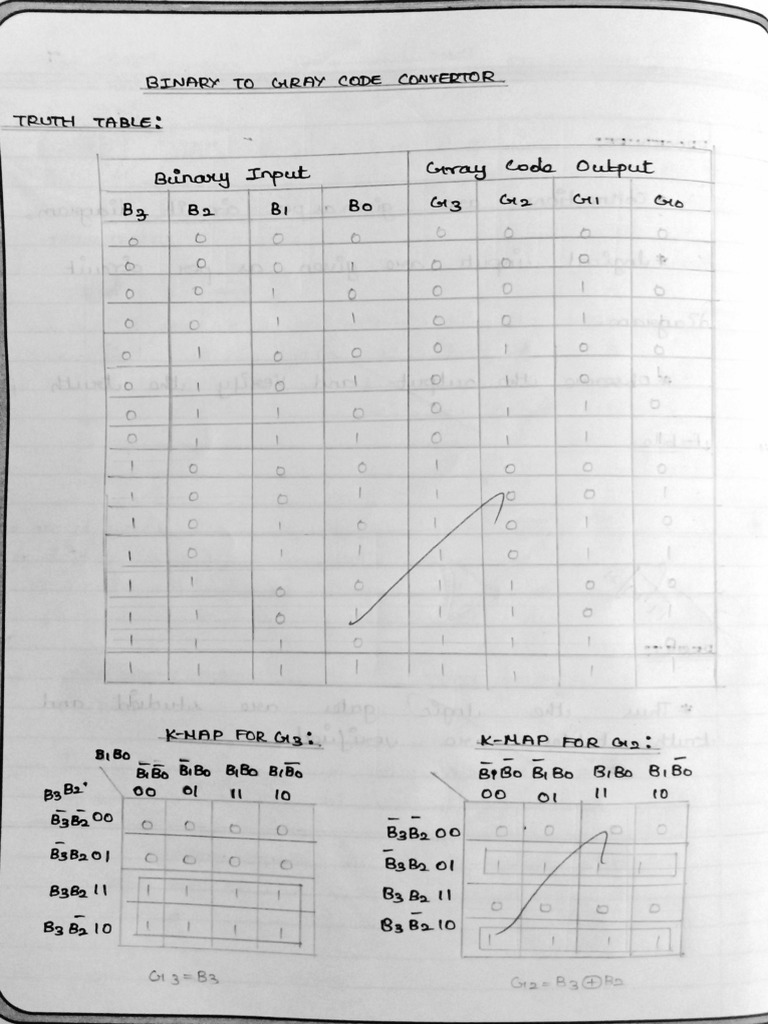 BINARY TO GRAY CODE CONVERTOR
TRUTH TABLE:
Binary Input Gray Code Output
B3 B2 B1 B0 G3 G2 G1 G0
0 0 0 0 0 0 0 0
0 0 0 1 0 0 0 1
0 0 1 0 0 0 1 0
0 0 1 1 0 0 1
0 1 0 0 0 1 0 0
0 1 0 1 0 1 0 1
0 1 1 0 0 1 1 0
0 1 1 1 0 1 1 1
1 0 0 0 1 0 0 0
1 0 0 1 1 0 0 1
1 0 1 0 1 0 1 0
1 0 1 1 1 0 1 1
1 1 0 0 1 1 0 0
1 1 0 1 1 1 0 1
1 1 1 0 1 1 1
1 1 1 1 1 1 1 1
K-MAP FOR G3:
B1B0
B̅1B̅0 B̅1B0 B1B0 B1B̅0
B3B2 00 01 11 10
B̅3B̅2 00 0 0 0 0
B̅3B2 01 0 0 0 0
B3B2 11 1 1 1 1
B3B̅2 10 1 1 1 1
G3=B3
K-MAP FOR G2:
B̅1B̅0 B̅1B0 B1B0 B1B̅0
00 01 11 10
B̅3B̅2 00 0 0 0 0
B̅3B2 01 1 1 1 1
B3B2 11 0 0 0 0
B3B̅2 10 1 1 1 1
G2=B3⊕B2